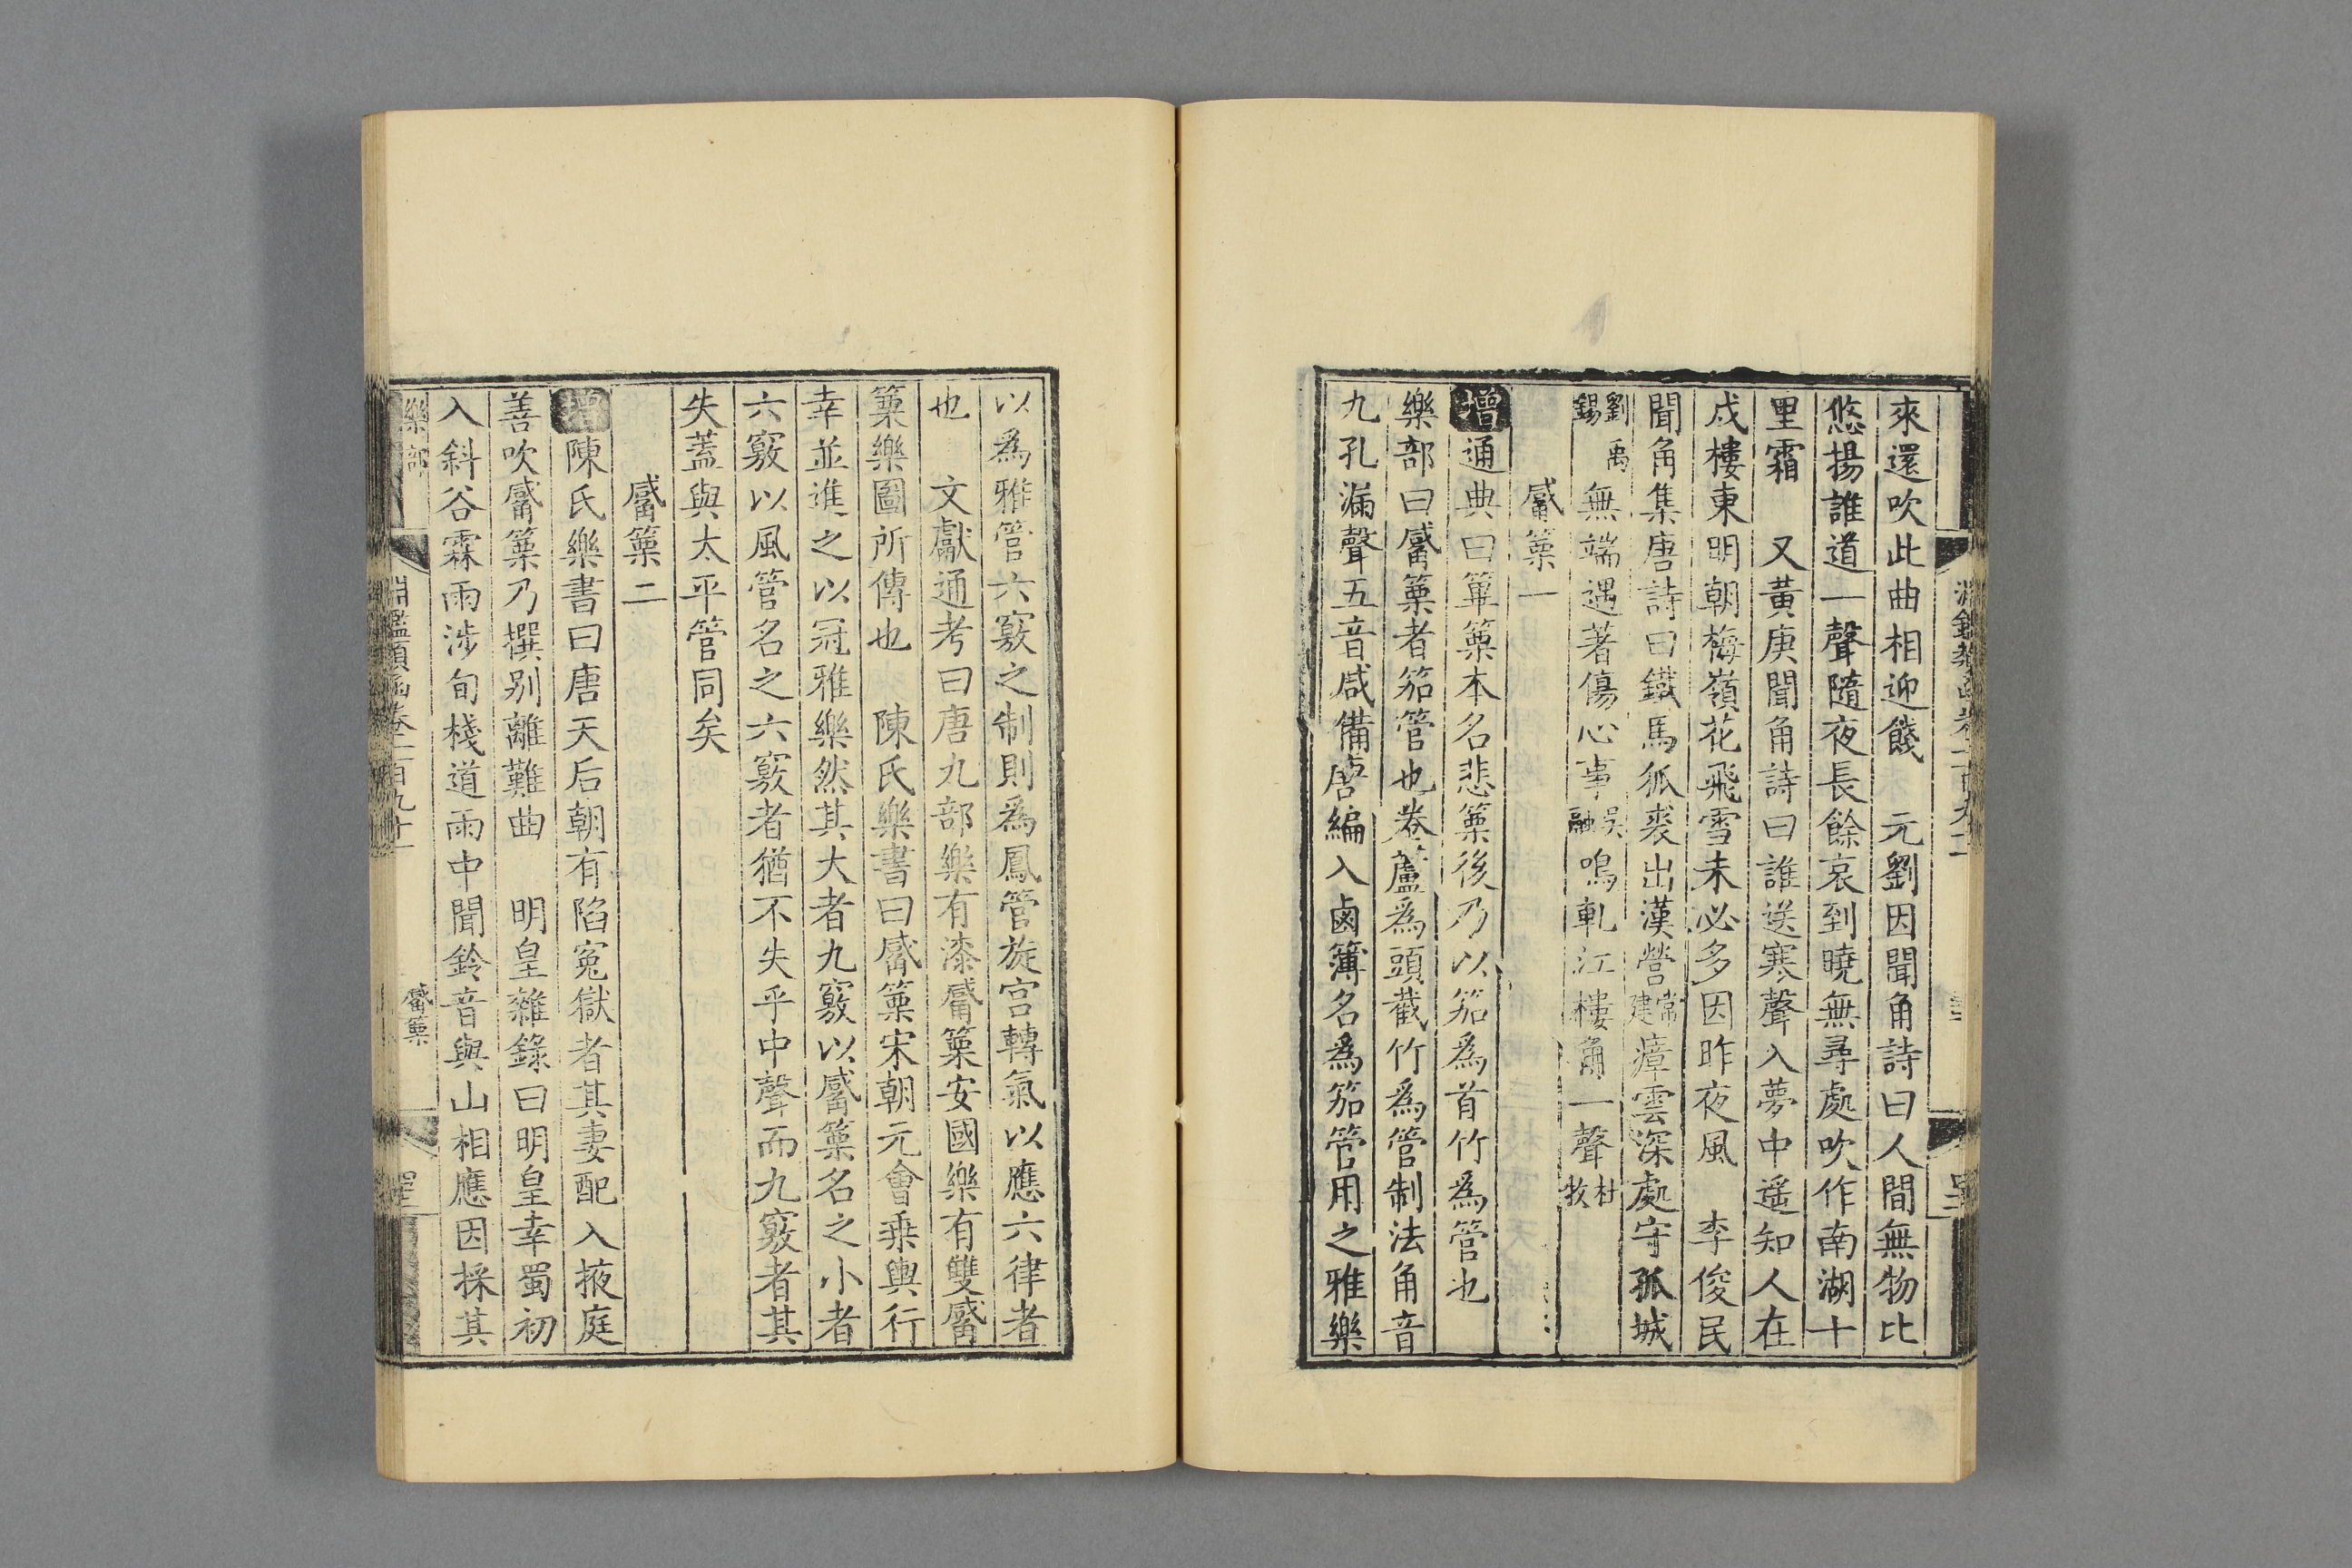 來還吹此曲相迎餞　元劉因聞角詩曰人間無物比
悠揚誰道一聲隨夜長餘哀到曉無尋處吹作南湖十
里霜　又黃庚聞角詩曰誰送寒聲入夢中遥知人在
戍樓東明朝梅嶺花飛雪未必多因昨夜風　李俊民
聞角集唐詩曰鐵馬狐裘出漢營常建瘴雲深處守孤城
劉禹錫無端遇著傷心事吳融嗚軋江樓角一聲杜牧
觱篥一
增通典曰篳篥本名悲篥後乃以笳為首竹為管也
樂部曰觱篥者笳管也卷蘆為頭截竹為管制法角音
九孔漏聲五音咸備唐編入鹵簿名為笳管用之雅樂
以為雅管六竅之制則為鳳管旋宮轉氣以應六律者
也　文獻通考曰唐九部樂有漆觱篥安國樂有雙觱
篥樂圖所傳也　陳氏樂書曰觱篥宋朝元會乘輿行
幸並進之以冠雅樂然其大者九竅以觱篥名之小者
六竅以風管名之六竅者猶不失乎中聲而九竅者其
失蓋與太平管同矣
觱篥二
增陳氏樂書曰唐天后朝有陷寃獄者其妻配入掖庭
善吹觱篥乃撰别離難曲　明皇雜錄曰明皇幸蜀初
入斜谷霖雨涉旬棧道雨中聞鈴音與山相應因採其
樂部　淵鑑類函卷一百九十一　觱篥